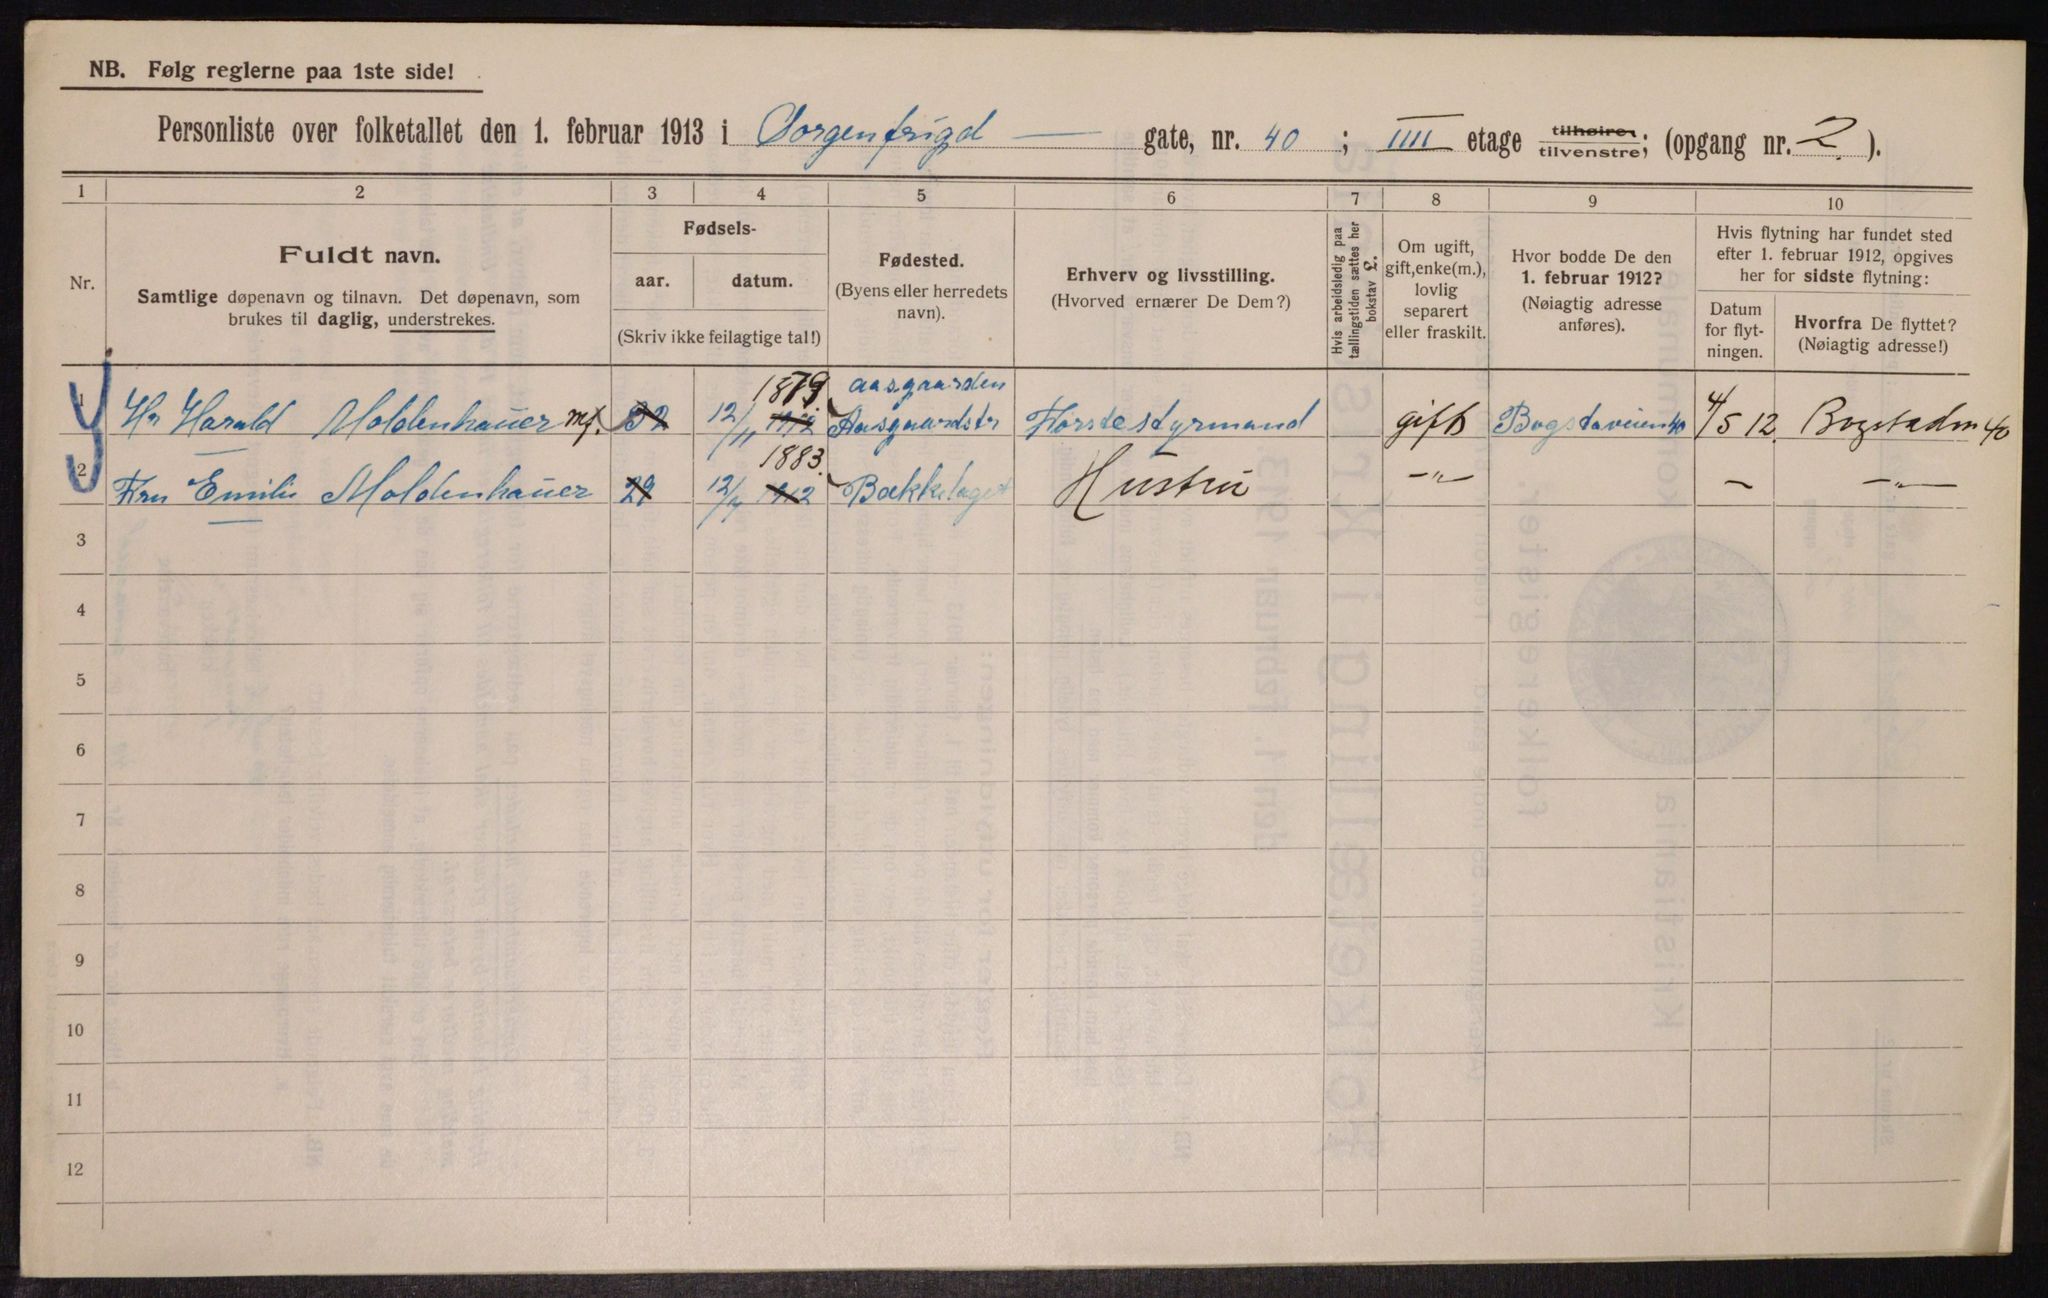 NB. Følg reglerne paa 1ste side!
Personliste over folketallet den 1. februar 1913 i Sorgenfrigd — gate, nr. 40; IIII etage tilhøire/tilvenstre; (opgang nr. 2.).
1 2 3 4 5 6 7 8 9 10
Nr.
Fuldt navn.
Samtlige døpenavn og tilnavn. Det døpenavn, som
brukes til daglig, understrekes.
Fødsels-
aar. datum.
(Skriv ikke feilagtige tal!)
Fødested.
(Byens eller herredets
navn).
Erhverv og livsstilling.
(Hvorved ernærer De Dem?)
Hvis arbeidsledig paa
tællingstiden sættes her
bokstav L.
Om ugift,
gift, enke(m.),
lovlig
separert
eller fraskilt.
Hvor bodde De den
1. februar 1912?
(Nøiagtig adresse
anføres).
Hvis flytning har fundet sted
efter 1. februar 1912, opgives
her for sidste flytning:
Datum
for flyt-
ningen.
Hvorfra De flyttet?
(Nøiagtig adresse!)
1879. aasgaarden
1 Hr Harald Moldenhauer 32 12/11 1912 Aasgaardstr Førstestyrmand gift Bogstaveien 40 4/5 12. 40
1883.
2 Fru Emilie Moldenhauer 29 12/4 1912 Bækkelaget Hustru —"— — —"—
3
4
5
6
7
8
9
10
11
12